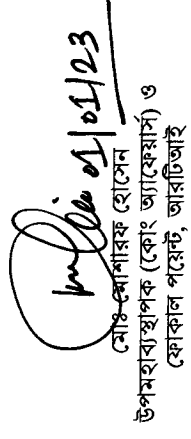 01/01/23
মোঃ মোশারফ হোসেন
উপমহাব্যবস্থাপক (কোং অ্যাফেয়ার্স) ও
ফোকাল পয়েন্ট, আরটিআই